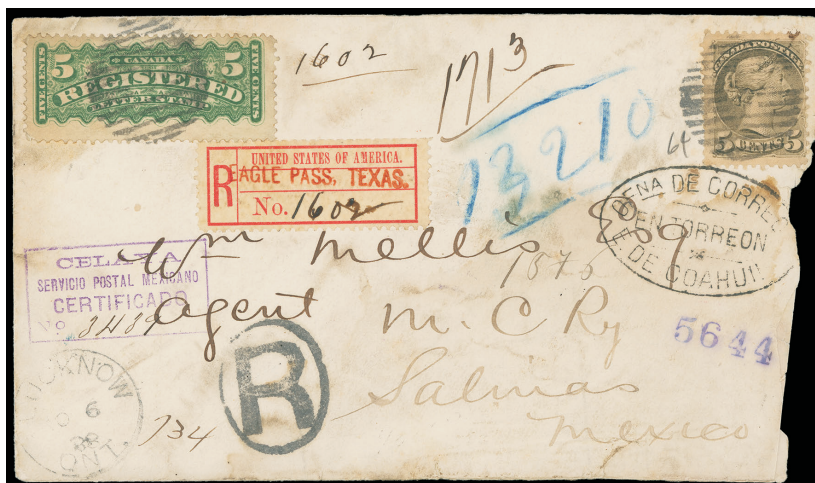 5 CANADA 5
FIVE CENTS REGISTERED FIVE CENTS
LETTER STAMP
1602
1713
13210
64
CANADA POSTAGE
5 CENTS 5
UNITED STATES OF AMERICA.
R EAGLE PASS, TEXAS.
No. 1602
DE CORREO
EN TORREON
E. DE COAHUI
CELAYA
SERVICIO POSTAL MEXICANO
CERTIFICADO
No 3439
Wm Mellis Esq
1876
agent M. C Ry
5644
Salinas
Mexico
R
734
LUCKNOW
6
ONT.